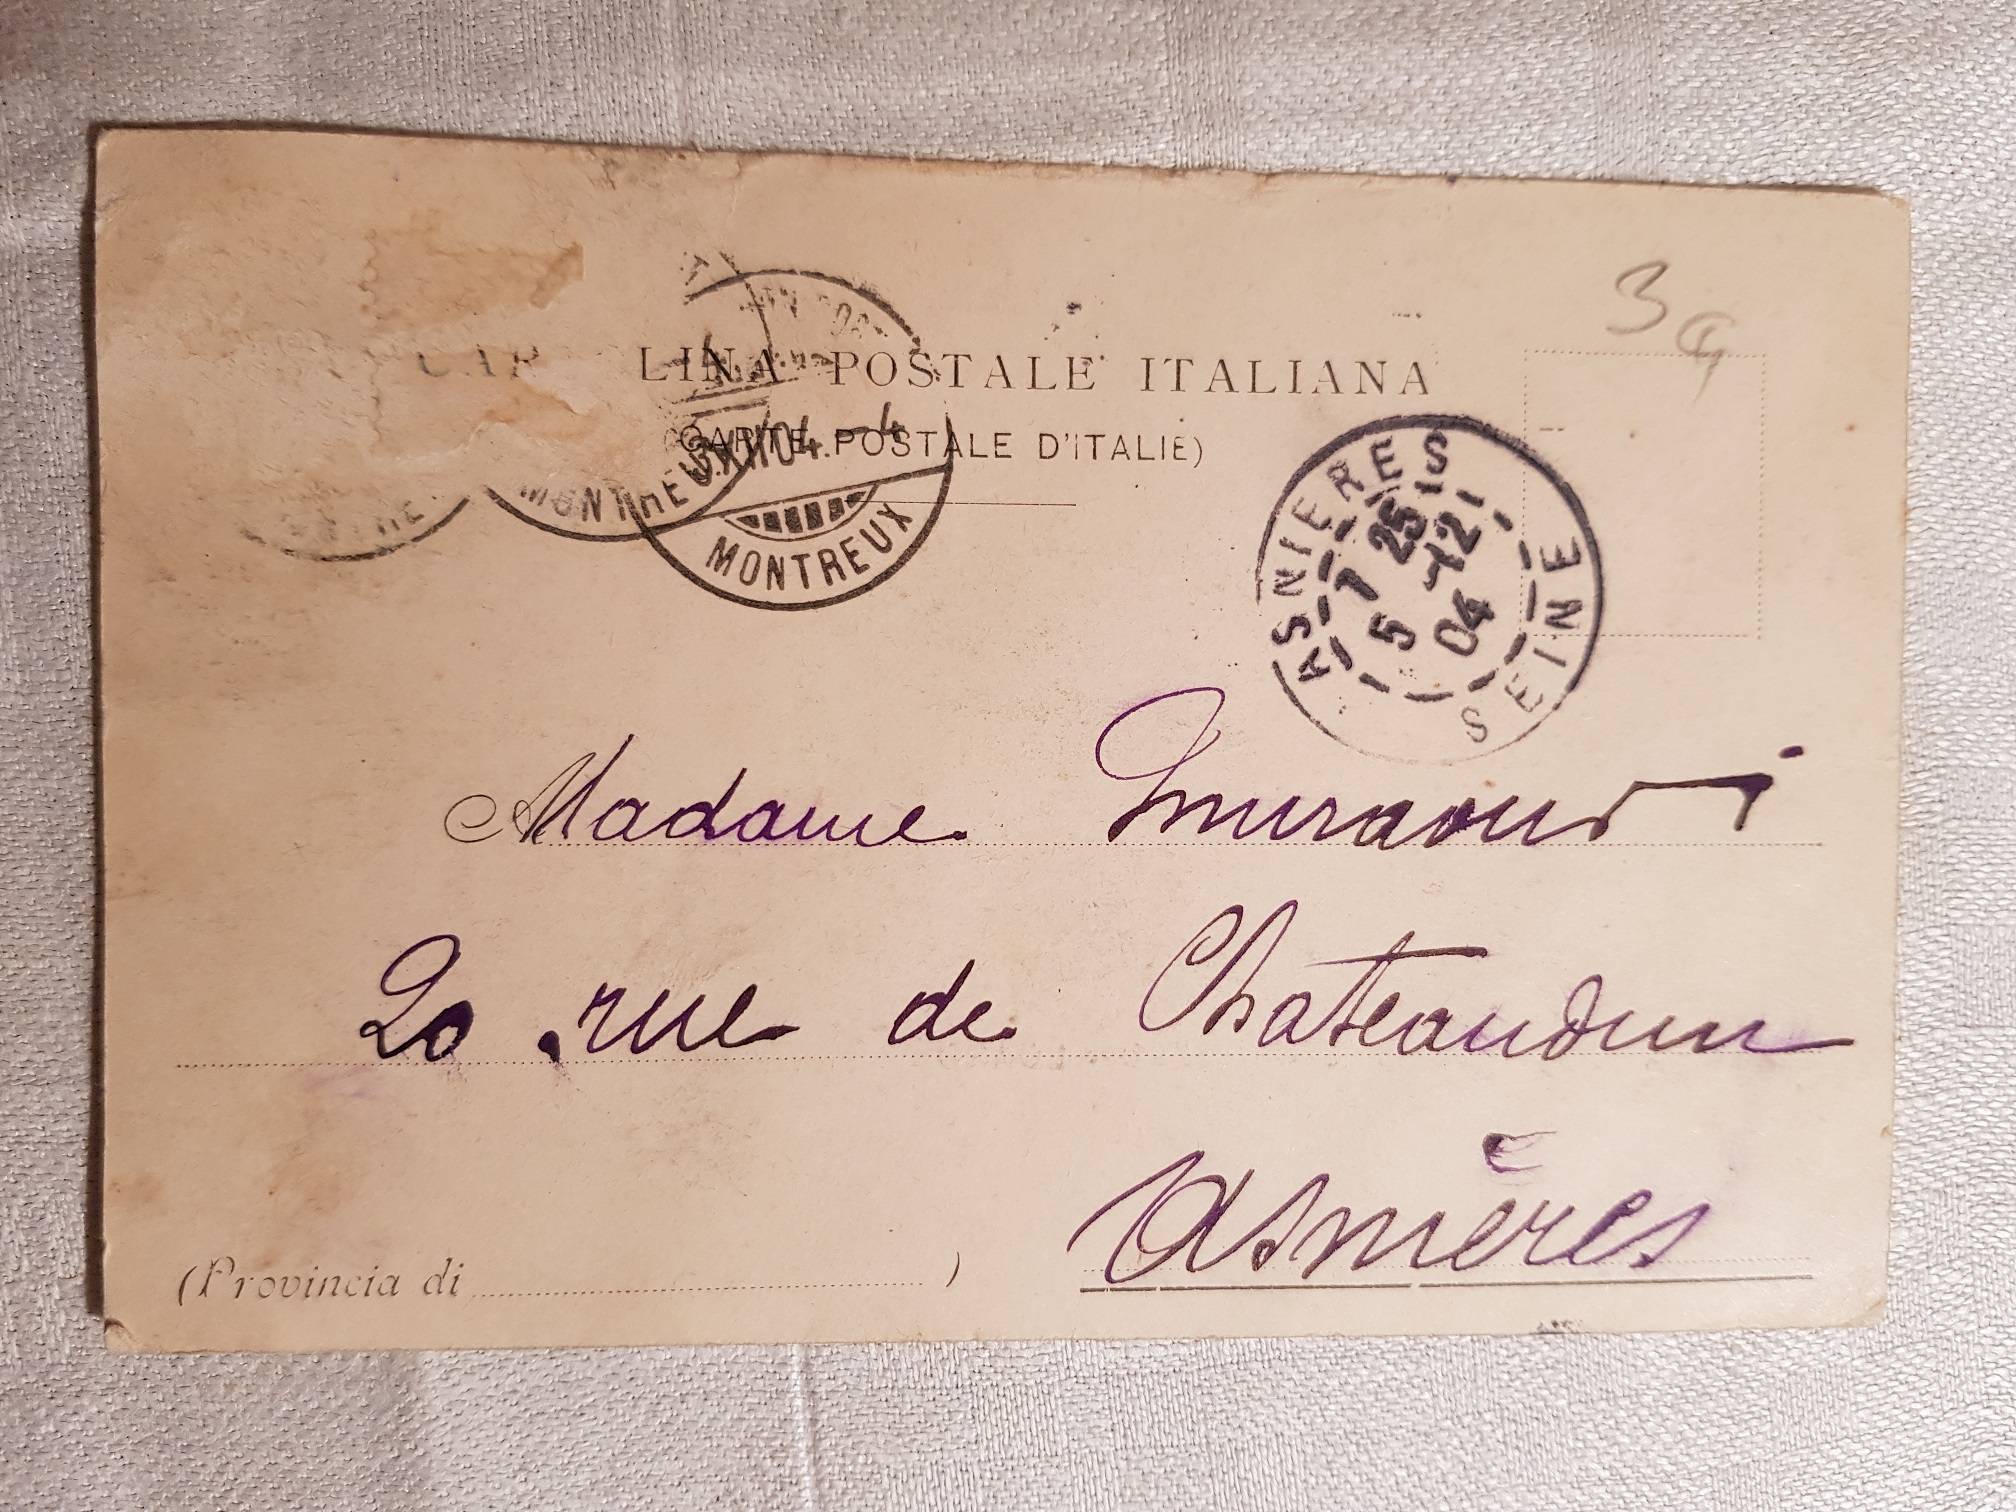 3
CARTOLINA POSTALE ITALIANA
(CARTE POSTALE D'ITALIE)
3 XII 04. - 4
MONTREUX
MONTREUX
ASNIERES
7 25
5 -12
04
SEINE
Madame
20. rue de Chateaudun
Asnières
(Provincia di )